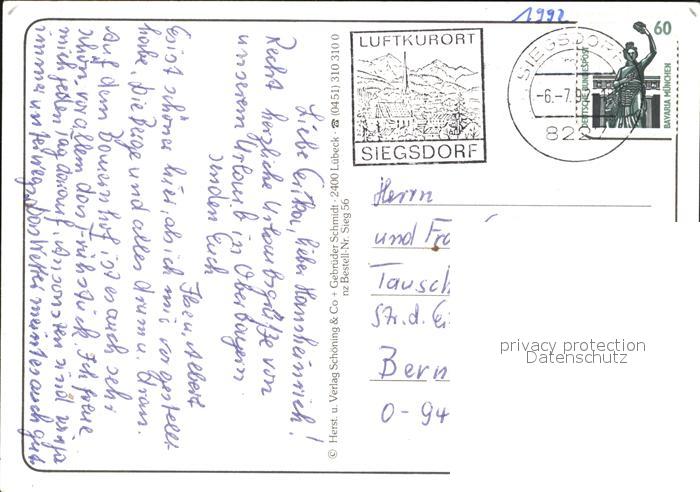 1992
LUFTKURORT
SIEGSDORF
SIEGSDORF
-6.-7.9
822
60
DEUTSCHE BUNDESPOST
BAVARIA MÜNCHEN
Liebe Erika, lieber Hansheinrich!
Recht herzliche Urlaubsgrüße von
unserem Urlaub in Oberbayern
senden Euch
Ilse u. Albert
Es ist schöner hier, als ich mir vorgestellt
habe. Die Berge und alles drum u. dran.
Auf dem Bauernhof ist es auch sehr
schön, vor allem das Frühstück. Ich freue
mich jeden Tag darauf. Ansonsten sind wir ja
immer unterwegs. Das Wetter meint es auch gut
© Herst. u. Verlag Schöning & Co + Gebrüder Schmidt · 2400 Lübeck · ☎ (0451) 310 310 0
nz Bestell-Nr. Sieg 56
Herrn
und Fra
Tausch
Str. d. Ei
Bern
O-94
privacy protection
Datenschutz